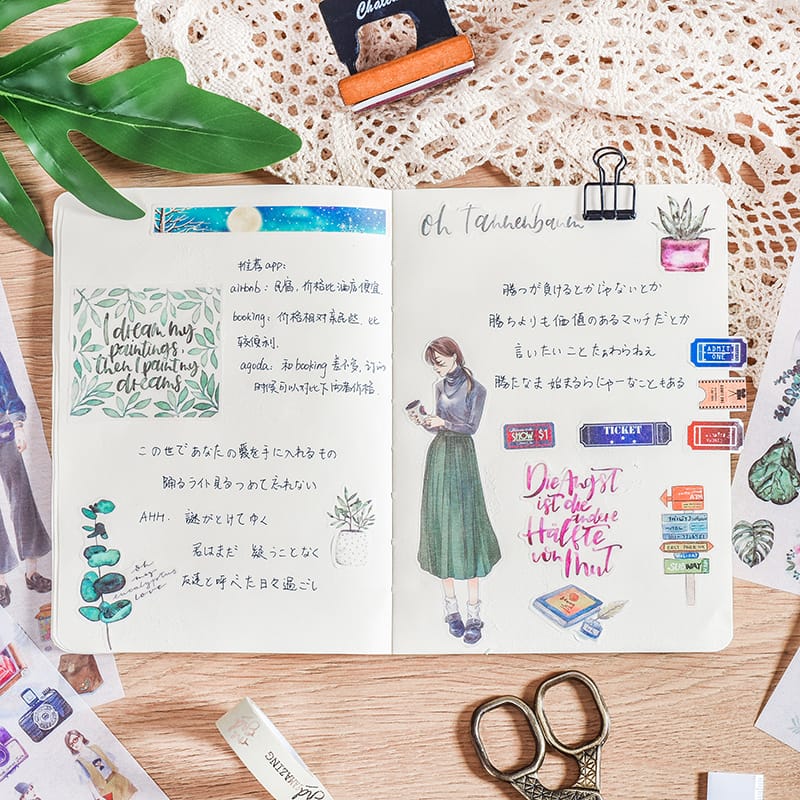 oh Tannenbaum
推荐app:
airbnb: 民宿，价格比酒店便宜
booking: 价格相对亲民些，比
较便利.
agoda: 和booking差不多，订的
时候可以对比下两者价格.
I dream my
paintings,
then I paint my
dreams
この世であなたの愛を手に入れるもの
踊るライト見るつめて忘れない
AHH. 謎がとけてゆく
君はまだ 疑うことなく
友達と呼べた日々過ごし
oh
my
eucalyptus
love
勝つが負けるとかじゃないとか
勝ちよりも価値のあるマッチだとか
言いたいこと
勝たなま始まるらにゃーなこともある
ADMIT
ONE
SHOW $1
TICKET
Die Angst
ist die
andere
Hälfte
von Mut
EAST PARK RD
HOLIDAY
SUBWAY
AMAZING